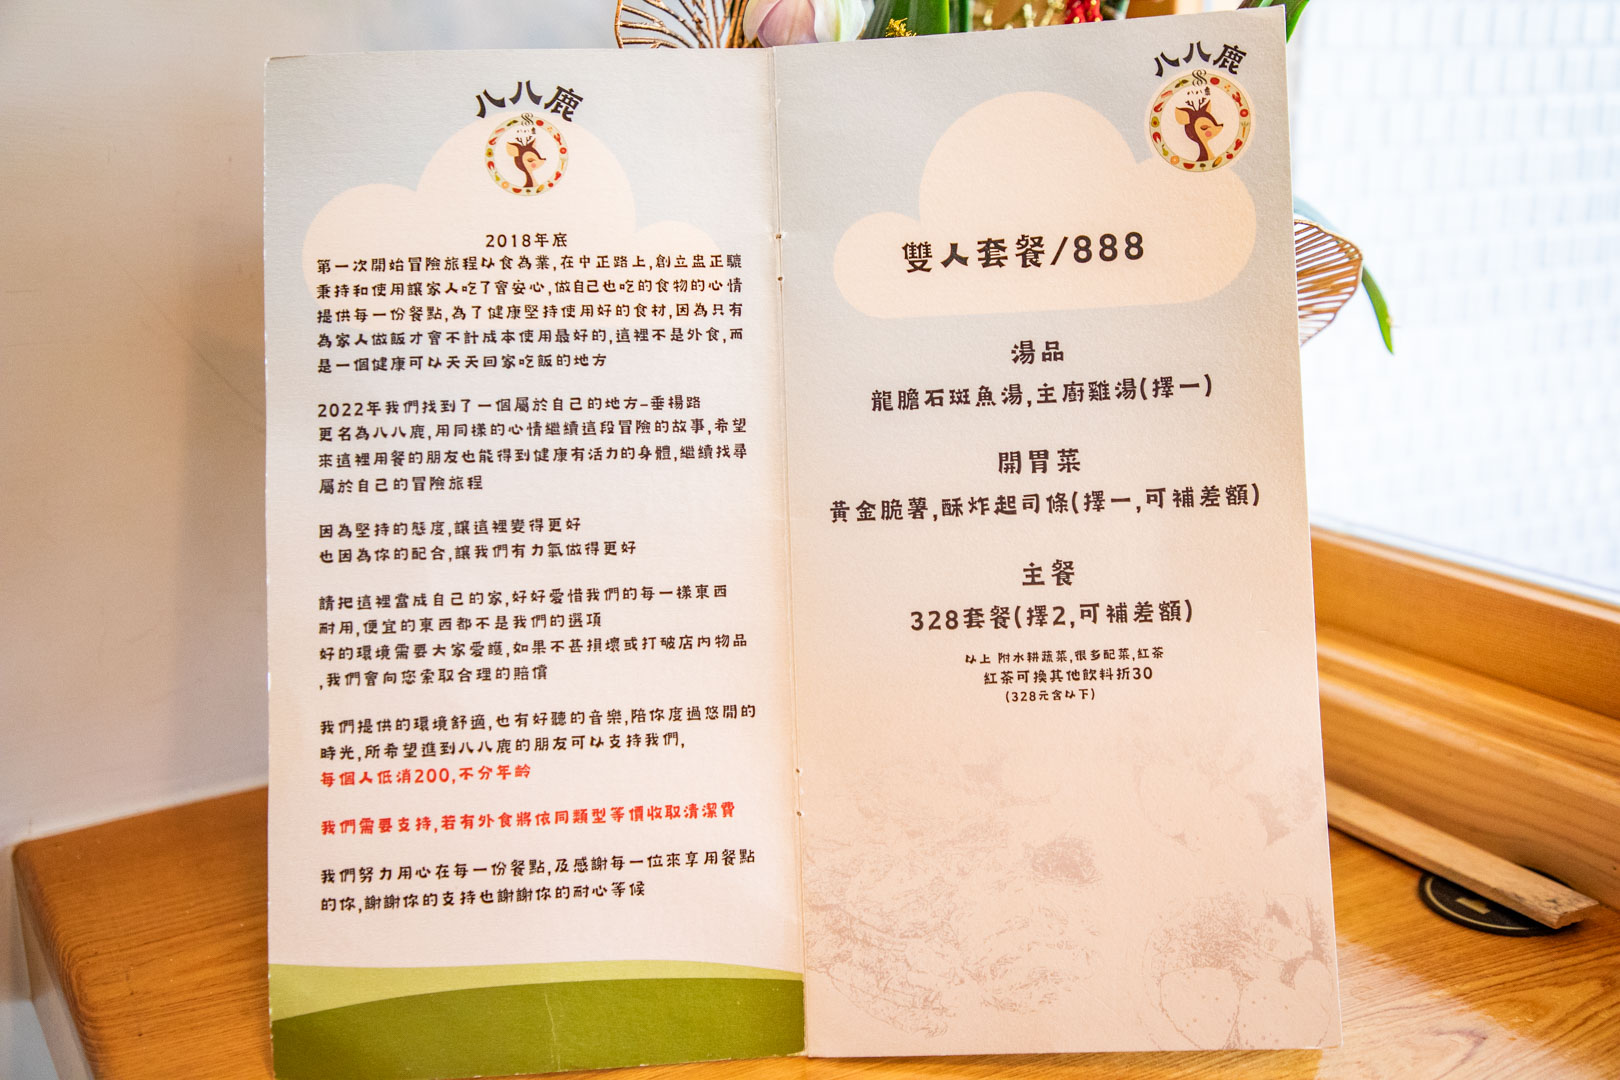 八八鹿
八八鹿
2018年底
第一次開始冒險旅程以食為業,在中正路上,創立盅正驣
秉持和使用讓家人吃了會安心,做自己也吃的食物的心情
提供每一份餐點,為了健康堅持使用好的食材,因為只有
為家人做飯才會不計成本使用最好的,這裡不是外食,而
是一個健康可以天天回家吃飯的地方
2022年我們找到了一個屬於自己的地方–垂楊路
更名為八八鹿,用同樣的心情繼續這段冒險的故事,希望
來這裡用餐的朋友也能得到健康有活力的身體,繼續找尋
屬於自己的冒險旅程
因為堅持的態度,讓這裡變得更好
也因為你的配合,讓我們有力氣做得更好
請把這裡當成自己的家,好好愛惜我們的每一樣東西
耐用,便宜的東西都不是我們的選項
好的環境需要大家愛護,如果不甚損壞或打破店內物品
,我們會向您索取合理的賠償
我們提供的環境舒適,也有好聽的音樂,陪你度過悠閒的
時光,所希望進到八八鹿的朋友可以支持我們,
每個人低消200,不分年齡
我們需要支持,若有外食將依同類型等價收取清潔費
我們努力用心在每一份餐點,及感謝每一位來享用餐點
的你,謝謝你的支持也謝謝你的耐心等候
八八鹿
八八鹿
雙人套餐/888
湯品
龍膽石斑魚湯,主廚雞湯(擇一)
開胃菜
黃金脆薯,酥炸起司條(擇一,可補差額)
主餐
328套餐(擇2,可補差額)
以上 附水耕蔬菜,很多配菜,紅茶
紅茶可換其他飲料折30
(328元含以下)